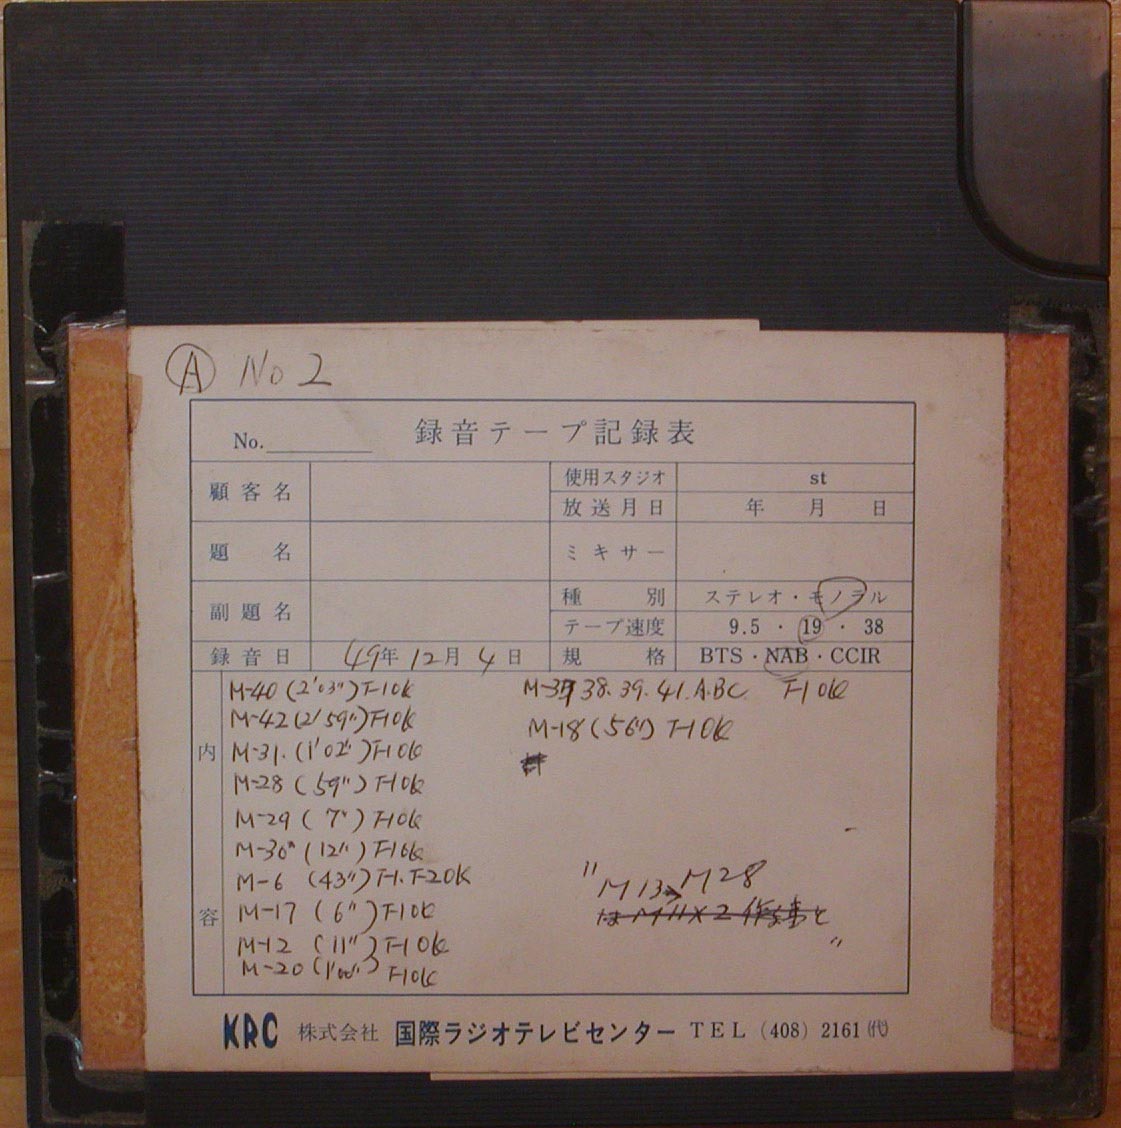 Ⓐ No 2
No. 録音テープ記録表
顧客名 使用スタジオ st
放送月日 年 月 日
題名 ミキサー
種別 ステレオ・モノラル
副題名 テープ速度 9.5・19・38
録音日 49年12月4日 規格 BTS・NAB・CCIR
内容
M-40 (2'03") T-1 OK
M-42 (2'59") T-1 OK
M-31. (1'02") T-1 OK
M-28 (59") T-1 OK
M-29 (7") T-1 OK
M-30" (12") T-1 OK
M-6 (43") T-1. T-2 OK
M-17 (6") T-1 OK
M-12 (11") T-1 OK
M-20 (1'00") T-1 OK
M-37 38. 39. 41. A.B.C. T-1 OK
M-18 (56") T-1 OK
" M13→M28
"
KRC 株式会社 国際ラジオテレビセンター TEL (408) 2161 (代)